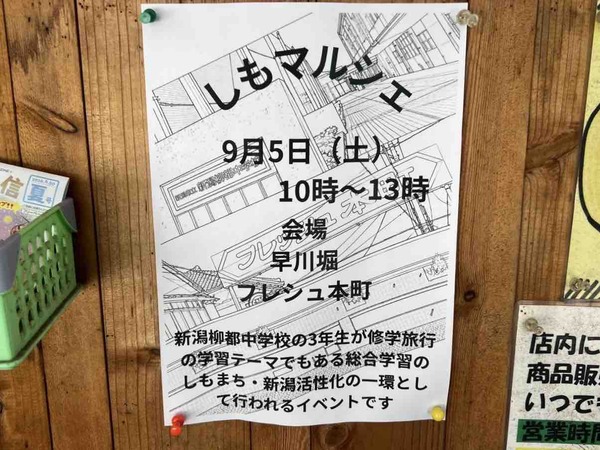 しもマルシェ
9月5日（土）
10時～13時
会場
早川堀
フレシュ本町
新潟柳都中学校の3年生が修学旅行
の学習テーマでもある総合学習の
しもまち・新潟活性化の一環とし
て行われるイベントです
新潟柳都中学
フレシュ本
信
夏
店内に
商品販
いつで
営業時間